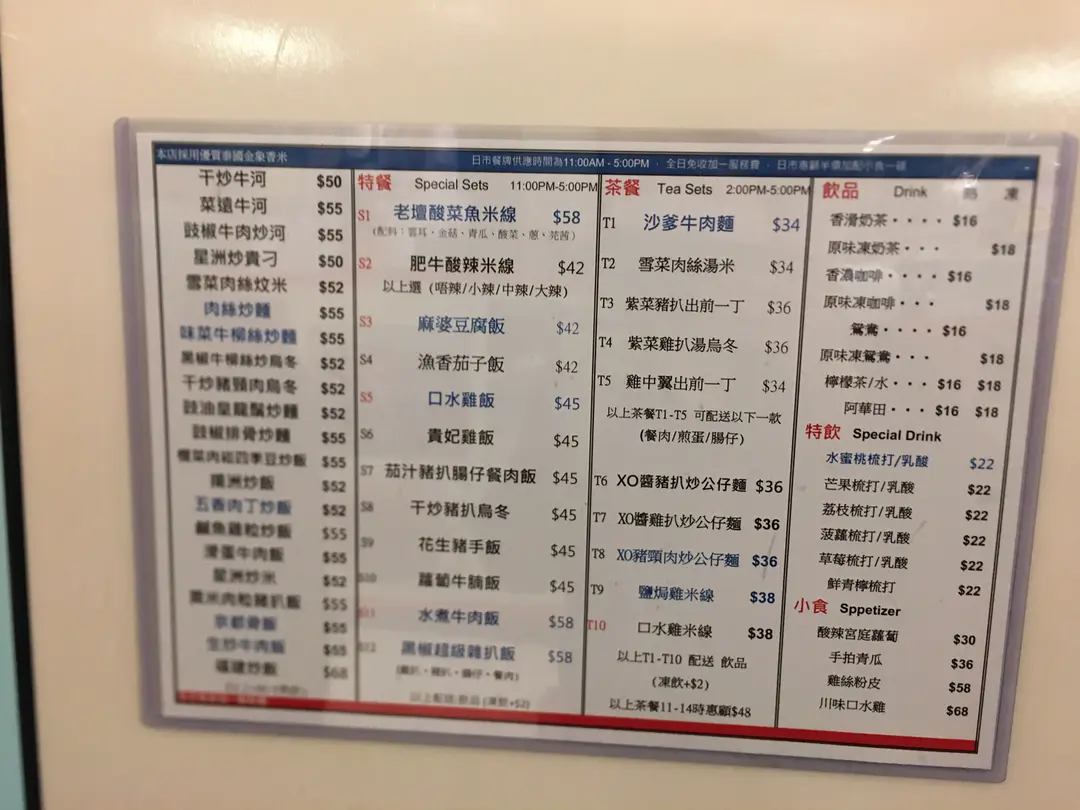 本店採用優質泰國金象香米
日市餐牌供應時間為11:00AM - 5:00PM ， 全日免收加一服務費 ， 日市惠顧半價加配小食一碟
干炒牛河 $50
菜遠牛河 $55
豉椒牛肉炒河 $55
星洲炒貴刁 $50
雪菜肉絲炆米 $52
肉絲炒麵 $55
味菜牛柳絲炒麵 $55
黑椒牛柳絲炒烏冬 $52
干炒豬頸肉烏冬 $52
豉油皇龍鬚炒麵 $52
豉椒排骨炒麵 $55
欖菜肉崧四季豆炒飯 $55
揚洲炒飯 $52
五香肉丁炒飯 $52
鹹魚雞粒炒飯 $55
滑蛋牛肉飯 $55
星洲炒米 $52
粟米肉粒豬扒飯 $55
京都骨飯 $55
生炒牛肉飯 $55
福建炒飯 $68
特餐 Special Sets 11:00PM-5:00PM
S1 老壇酸菜魚米線 $58
(配料：雲耳、金菇、青瓜、酸菜、蔥、芫茜)
S2 肥牛酸辣米線 $42
以上選 (唔辣/小辣/中辣/大辣)
S3 麻婆豆腐飯 $42
S4 漁香茄子飯 $42
S5 口水雞飯 $45
S6 貴妃雞飯 $45
S7 茄汁豬扒腸仔餐肉飯 $45
S8 干炒豬扒烏冬 $45
S9 花生豬手飯 $45
S10 蘿蔔牛腩飯 $45
S11 水煮牛肉飯 $58
S12 黑椒超級雜扒飯 $58
(雞扒，豬扒，腸仔，餐肉)
以上配送 飲品 (凍飲+$2)
茶餐 Tea Sets 2:00PM-5:00PM
T1 沙爹牛肉麵 $34
T2 雪菜肉絲湯米 $34
T3 紫菜豬扒出前一丁 $36
T4 紫菜雞扒湯烏冬 $36
T5 雞中翼出前一丁 $34
以上茶餐T1-T5 可配送以下一款
(餐肉/煎蛋/腸仔)
T6 XO醬豬扒炒公仔麵 $36
T7 XO醬雞扒炒公仔麵 $36
T8 XO豬頸肉炒公仔麵 $36
T9 鹽焗雞米線 $38
T10 口水雞米線 $38
以上T1-T10 配送 飲品
(凍飲+$2)
以上茶餐11-14時惠顧$48
飲品 Drink 熱 凍
香滑奶茶・・・・ $16
原味凍奶茶・・・ $18
香濃咖啡・・・・ $16
原味凍咖啡・・・ $18
鴛鴦・・・・ $16
原味凍鴛鴦・・・ $18
檸檬茶/水・・・ $16 $18
阿華田・・・ $16 $18
特飲 Special Drink
水蜜桃梳打/乳酸 $22
芒果梳打/乳酸 $22
荔枝梳打/乳酸 $22
菠蘿梳打/乳酸 $22
草莓梳打/乳酸 $22
鮮青檸梳打 $22
小食 Sppetizer
酸辣宮庭蘿蔔 $30
手拍青瓜 $36
雞絲粉皮 $58
川味口水雞 $68